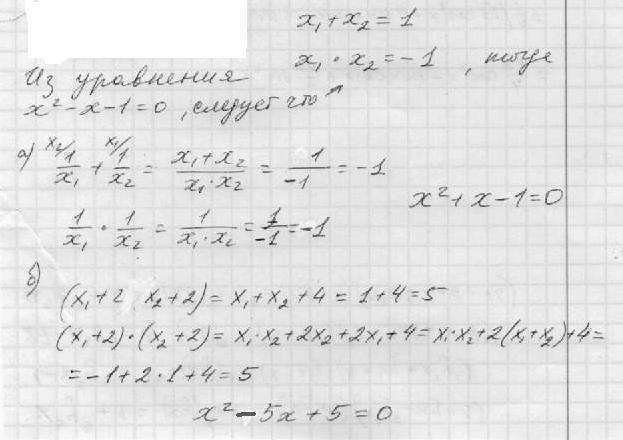 x₁+x₂=1
x₁·x₂=-1, тогда
Из уравнения
x²-x-1=0, следует что ↗
а) x₂/ 1/x₁ + x₁/ 1/x₂ = (x₁+x₂)/(x₁·x₂) = 1/-1 = -1
x²+x-1=0
1/x₁ · 1/x₂ = 1/(x₁·x₂) = 1/-1 = -1
б)
(x₁+2 x₂+2) = x₁+x₂+4 = 1+4=5
(x₁+2)·(x₂+2) = x₁·x₂+2x₂+2x₁+4 = x₁·x₂+2(x₁+x₂)+4=
=-1+2·1+4=5
x²-5x+5=0